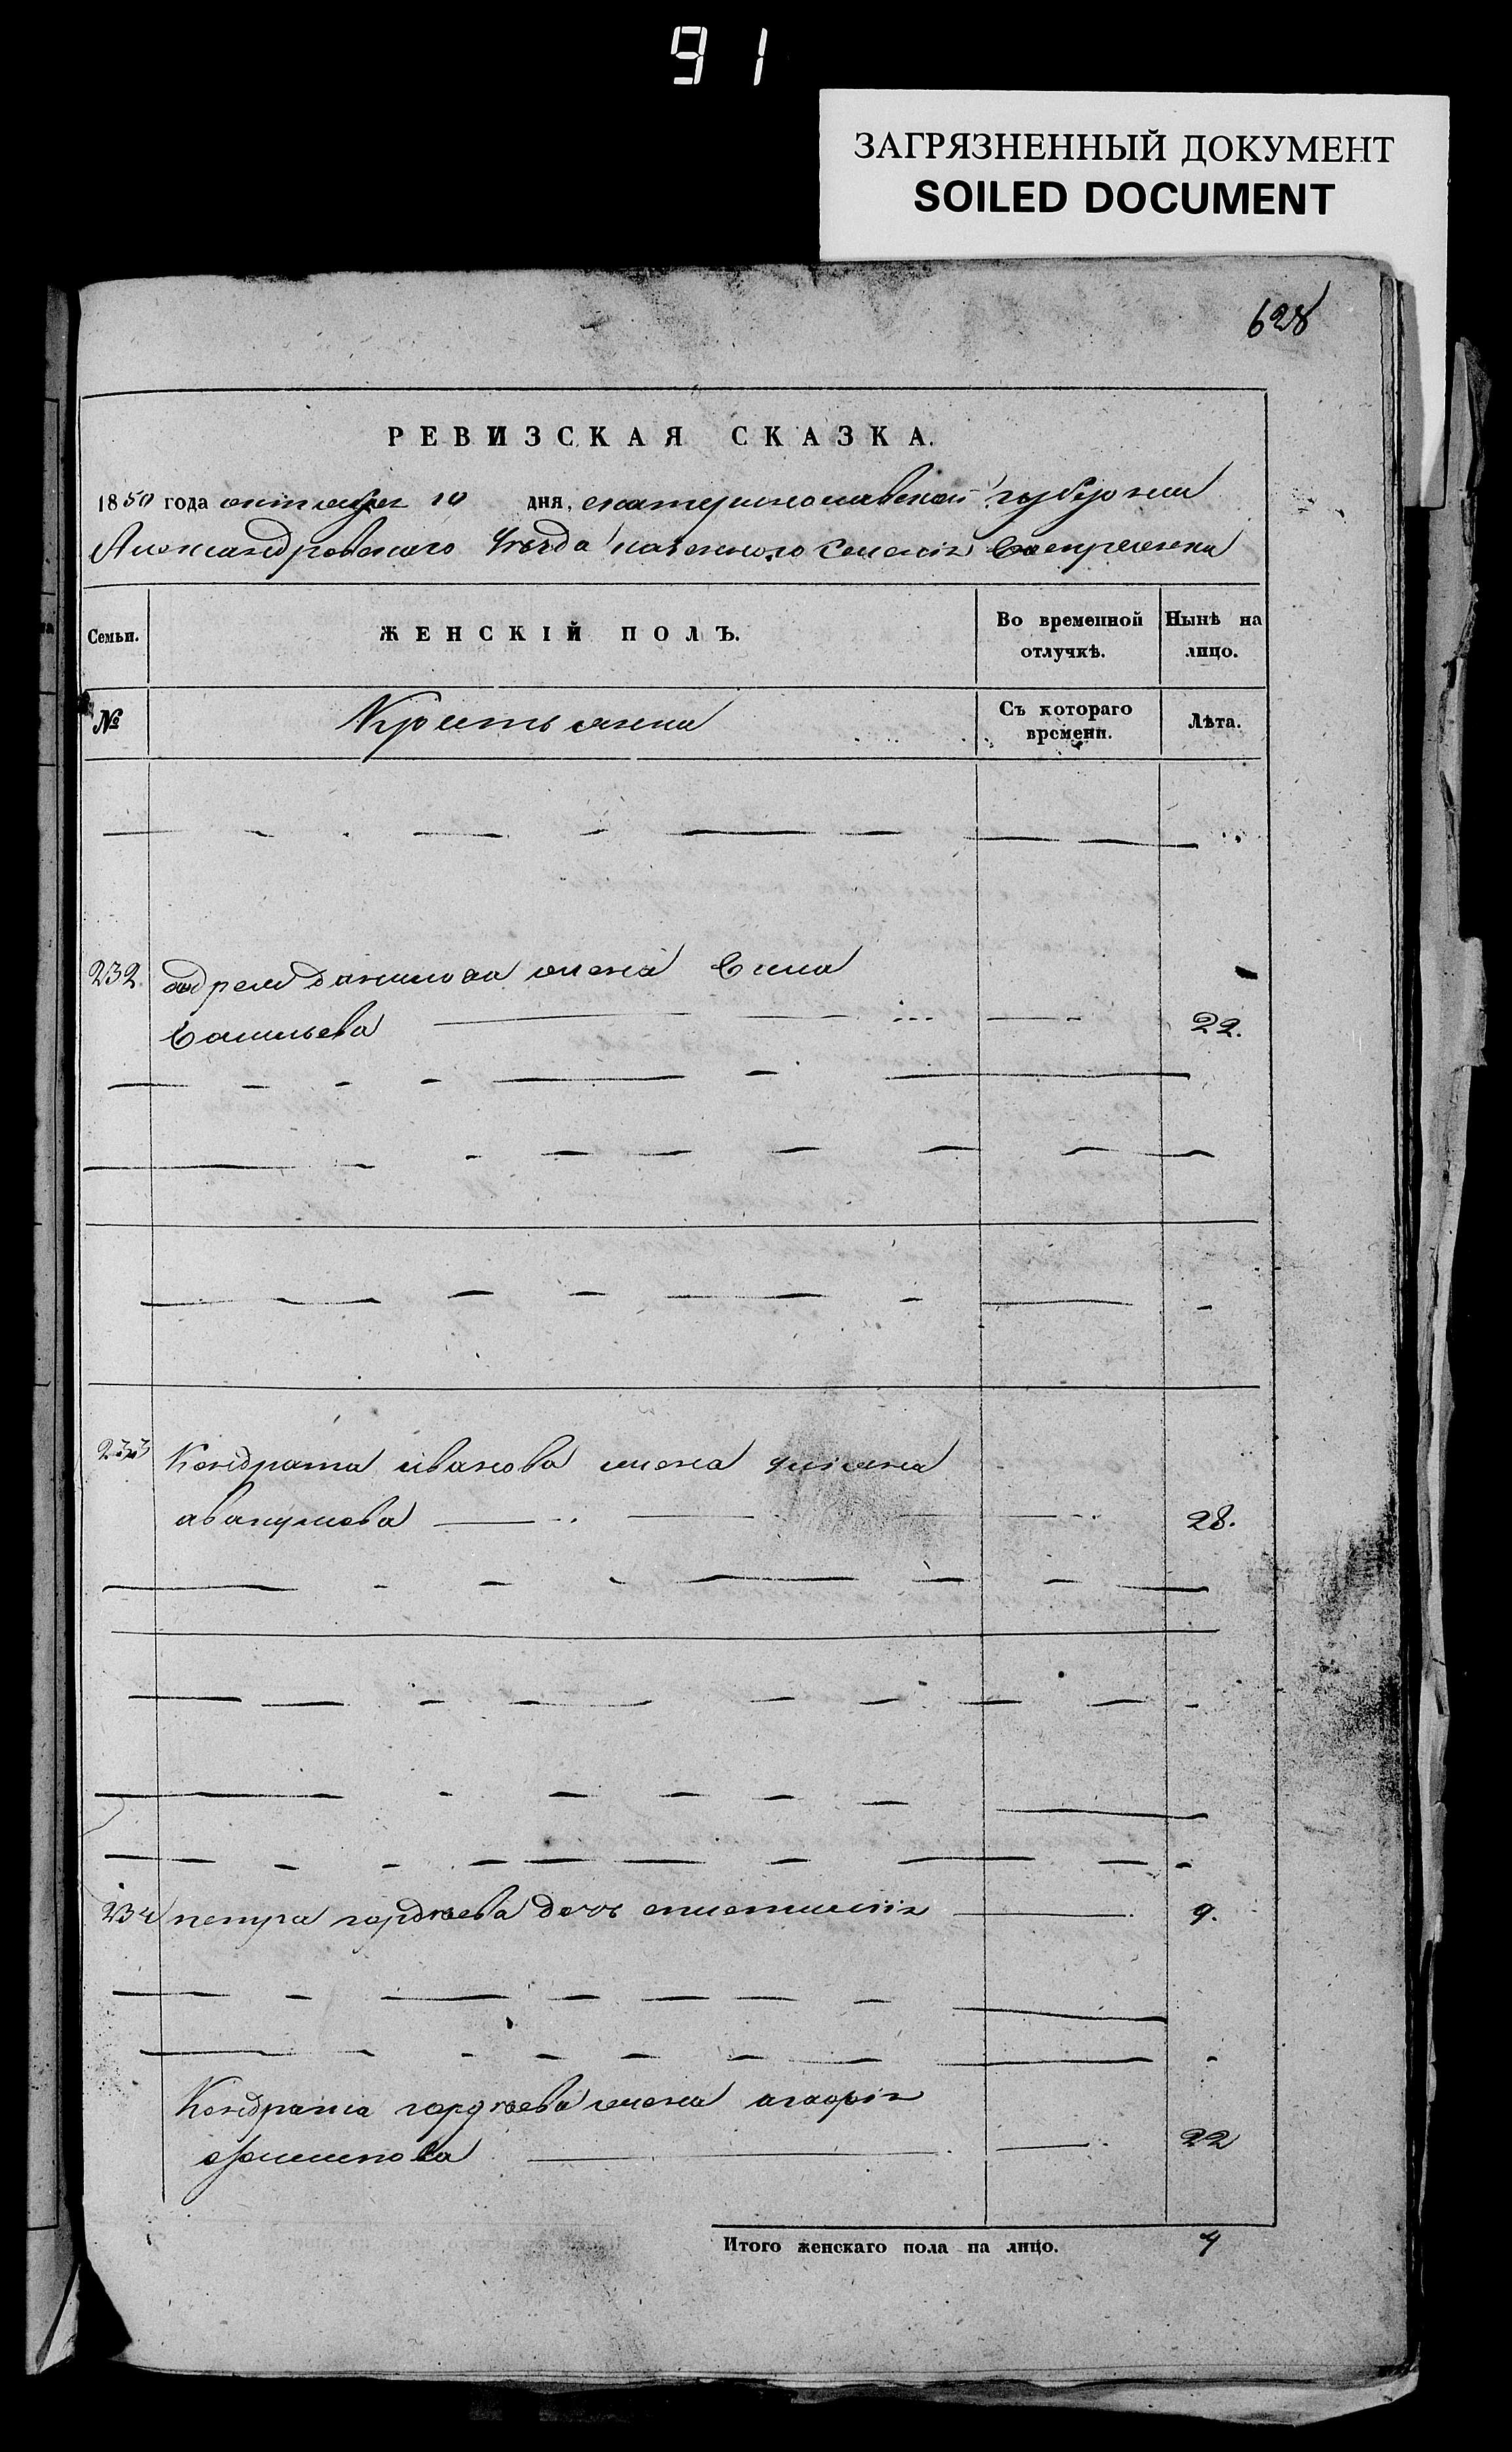 91
ЗАГРЯЗНЕННЫЙ ДОКУМЕНТ
SOILED DOCUMENT
628
РЕВИЗСКАЯ СКАЗКА.
1850 года октября 10 дня, екатеринославской губернии
Александровского Уезда казенного селения
Семьи. ЖЕНСКІЙ ПОЛЪ. Во временной отлучкѣ. Нынѣ на лицо.
№ Крестьянки Съ котораго времени. Лѣта.
232. Данилова жена
Васильева 22.
233 Кондрата иванова жена
авакумова 28.
234 петра гордѣева дочь 9.
Кондрата гордѣева жена агафія
филипова 22
Итого женскаго пола на лицо. 4